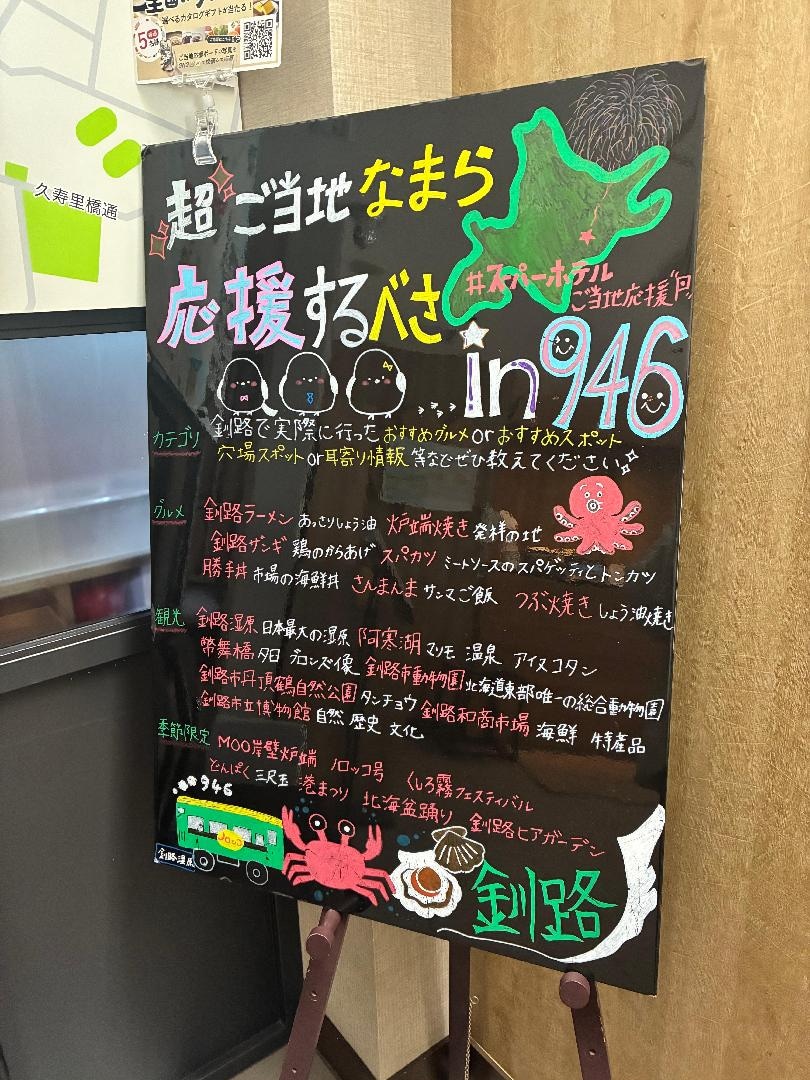 選べるカタログギフトが当たる!
久寿里橋通
超ご当地なまら
応援するべさ
#スーパーホテル
ご当地応援
in 946
カテゴリ 釧路で実際に行ったおすすめグルメorおすすめスポット
穴場スポットor耳寄り情報等などぜひ教えてください
グルメ 釧路ラーメン あっさりしょう油 炉端焼き 発祥の地
釧路ザンギ 鶏のからあげ スパカツ ミートソースのスパゲッティとトンカツ
勝手丼 市場の海鮮丼 さんまんま サンマご飯 つぶ焼き しょう油焼き
観光 釧路湿原 日本最大の湿原 阿寒湖 マリモ 温泉 アイヌコタン
幣舞橋 夕日 ブロンズ像 釧路市動物園 北海道東部唯一の総合動物園
釧路市丹頂鶴自然公園 タンチョウ 釧路和商市場 海鮮 特産品
釧路市立博物館 自然 歴史 文化
季節限定 MOO岸壁炉端 ノロッコ号 くしろ霧フェスティバル
どんぱく 三尺玉 港まつり 北海盆踊り 釧路ビアガーデン
946
ノロッコ
釧路湿原
釧路